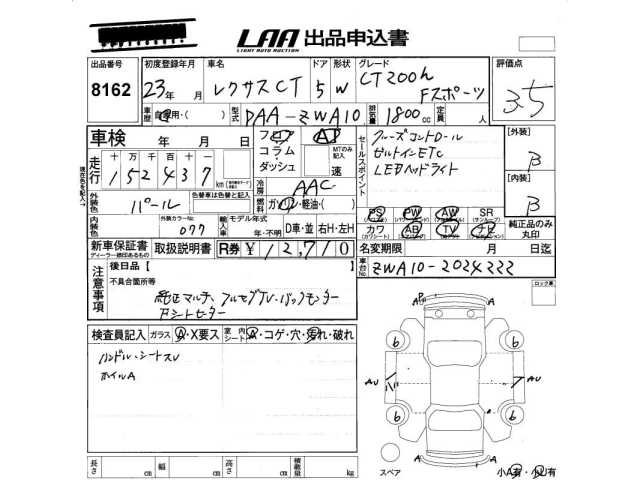 LAA 出品申込書
LIGHT AUTO AUCTION
出品番号 8162
初度登録年月 23年 月
車名 レクサスCT
ドア 5
形状 W
グレード CT200h Fスポーツ
評価点 3.5
車歴 自家用・( )
型式 DAA-ZWA10
排気量 1800cc
定員 人
車検 年 月 日
フロア コラム・ダッシュ
AT
MTのみ記入 速
走行 十万千百十 152437 km
冷房 AAC
外装色 パール
色替車は色替と記入
燃料 ガソリン・軽油・( )
外装カラーNo 077
輸入車 モデル年式 年・不明 D車・並 右H・左H
セールスポイント
クルーズコントロール
ビルトインETC
LEDヘッドライト
PS PW AW SR (サンルーフ)
カワ AB TV ナビ
純正品のみ丸印
[外装] B
[内装] B
新車保証書 取扱説明書 R券 ¥12,710
ディーラー捺印あるもの
名変期限 月 日迄
車台No ZWA10-2024222
注意事項
後日品【
不具合箇所等
純正マルチ、フルセグTV・バックモニター
Fシートヒーター
ロック車
検査員記入 ガラス A・X要ス 室内シート A・コゲ・穴・汚れ・破れ
ハンドル・シートスレ
ホイルA
A A
6 6
AU AU
6 6
A A
スペア
小A有・小U有
長さ cm 幅 cm 高さ cm 積載量 kg